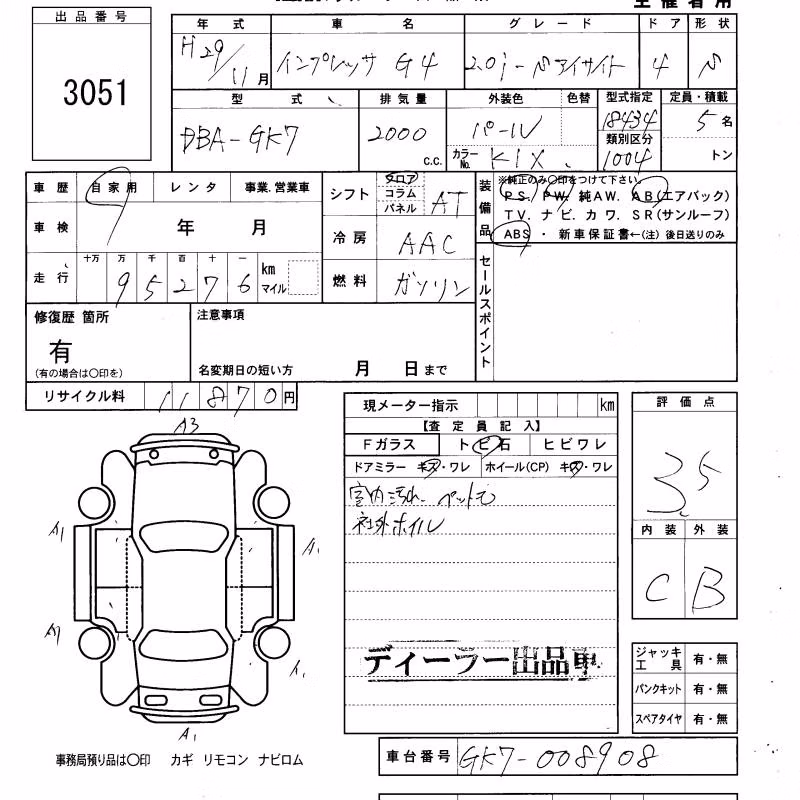 出品番号
3051
年式 車名 グレード ドア 形状
H29/11月 インプレッサ G4 2.0i-Sアイサイト 4 S
型式 排気量 外装色 色替 型式指定 定員・積載
DBA-GK7 2000 c.c. パール 18434 5名
類別区分
カラーNo. K1X 1004 トン
車歴 自家用 レンタ 事業.営業車
車検 9年 月
走行 十万 万 千 百 十 一 km マイル
95276
シフト フロア コラム パネル AT
冷房 AAC
燃料 ガソリン
装備品 ※純正のみ〇印をつけて下さい。
P.S. P.W. 純AW. AB(エアバック)
T.V. ナビ. カワ. SR(サンルーフ)
ABS ・ 新車保証書←(注) 後日送りのみ
セールスポイント
修復歴 箇所
有
(有の場合は〇印を)
注意事項
名変期日の短い方 月 日まで
リサイクル料 11870円
現メーター指示 km
【査定員記入】
Fガラス トビ石 ヒビワレ
ドアミラー キズ・ワレ ホイール(CP) キズ・ワレ
室内汚れ ペットモ
社外ホイル
ディーラー出品車
評価点
3.5
内装 外装
C B
A3
A1
A1
A1
A1
ジャッキ工具 有・無
パンクキット 有・無
スペアタイヤ 有・無
事務局預り品は〇印 カギ リモコン ナビロム
車台番号 GK7-008908